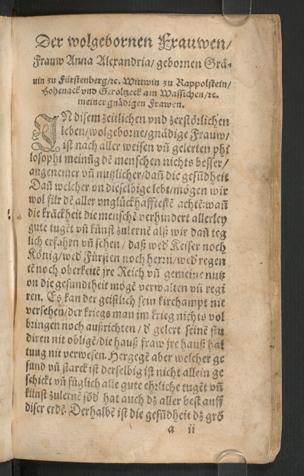 Der wolgebornen Frauwen/
Frauw Anna Alexandria/ gebornen Grä-
uin zu Fürstenberg/ ꝛc. Wittwin zu Rappolstein/
Hohenack vnd Geroltzeck am Wassichen/ ꝛc.
meiner gnädigen Frawen.
IN disem zeitlichen vnd zerstörlichen
leben/ wolgeborne/ gnädige Frauw/
ist nach aller weisen vñ gelerten phi
losophi meinũg dẽ menschen nichts besser/
angenemer vñ nutzlicher/ dañ die gesũdheit
Dañ welcher on dieselbige lebt/ mögen wir
wol für dẽ aller vnglückhafftestẽ achtẽ: wañ
die krãckheit die menschẽ verhindert allerley
gute tugẽt vñ kũnst zulernẽ alß wir dañ teg
lich erfahrn vñ sehen/ daß wed Keiser noch
König/ wed Fürsten noch herrn/ wed regen
tẽ noch oberkeitẽ jre Reich vñ gemeine nutz
on die gesundtheit mögẽ verwalten vñ regi
ren. Es kan der geistlich sein kirchampt nit
versehen/ der kriegs man im krieg nichts vol
bringen noch außrichten/ d gelert seinẽ stu
diren nit obligẽ/ die hauß fraw jre hauß hal
tung nit verwesen. Hergegẽ aber welcher ge
sund vñ starck ist derselbig ist nicht allein ge
schickt vñ füglich alle gute ehrliche tugẽt vñ
künst zulernẽ sõd hat auch dz aller best auff
diser erdẽ. Derhalbẽ ist die gesũdheit dz grö
a ii